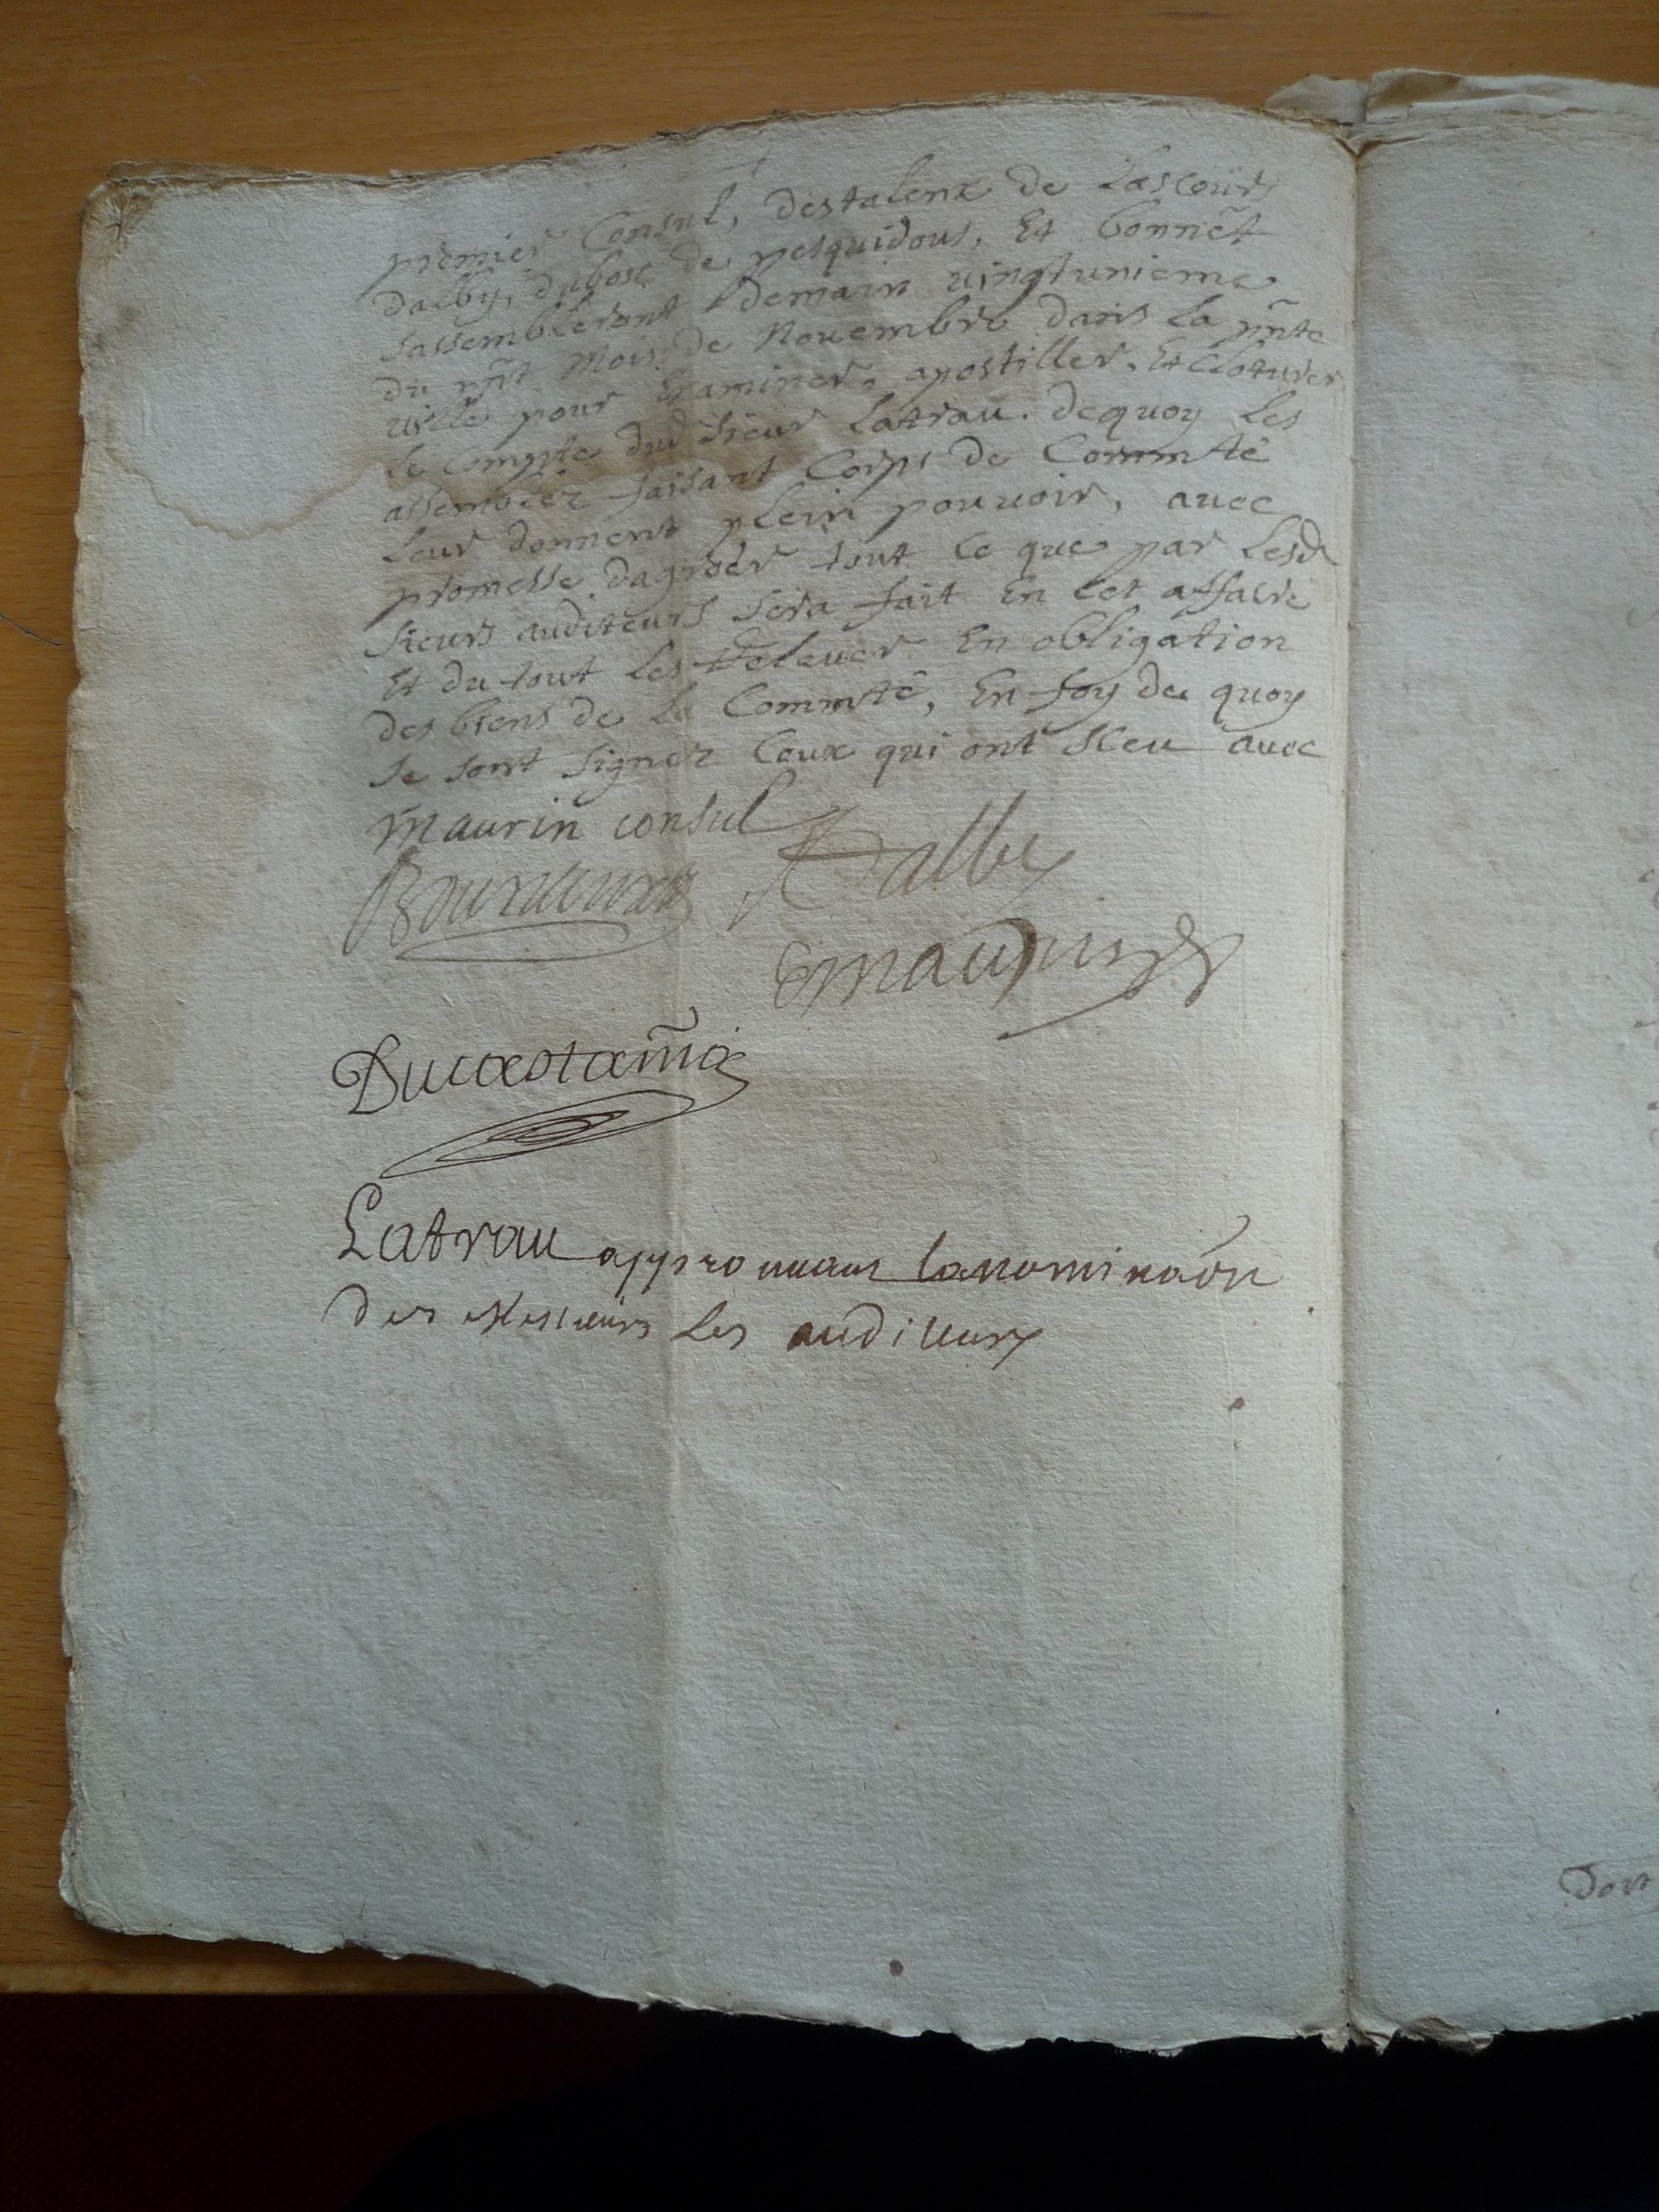 premier Consul, destalenx de Lascours
dalby, dubosc de pesquidous, Et bonnet
sassembleront demain vingtunieme
du pñt Mois de Nouembre dans la pñte
uille pour Examiner, apostiller, Et cloturer
le compte dud sieur Latrau. dequoy les
assemblez faisant Corps de Commté
leur donnent plein pouuoir, auec
promesse dagreer tout ce que par lesd
sieurs auditeurs sera fait En cet affaire
Et du tout les Releuer En obligation
des biens de la Commté, En foy de quoy
se sont signez Ceux qui ont sceu auec
Maurin consul
Dalby
Maurin
Latrau approuuant lanominaõn
des Messieurs les auditeurs
Dont